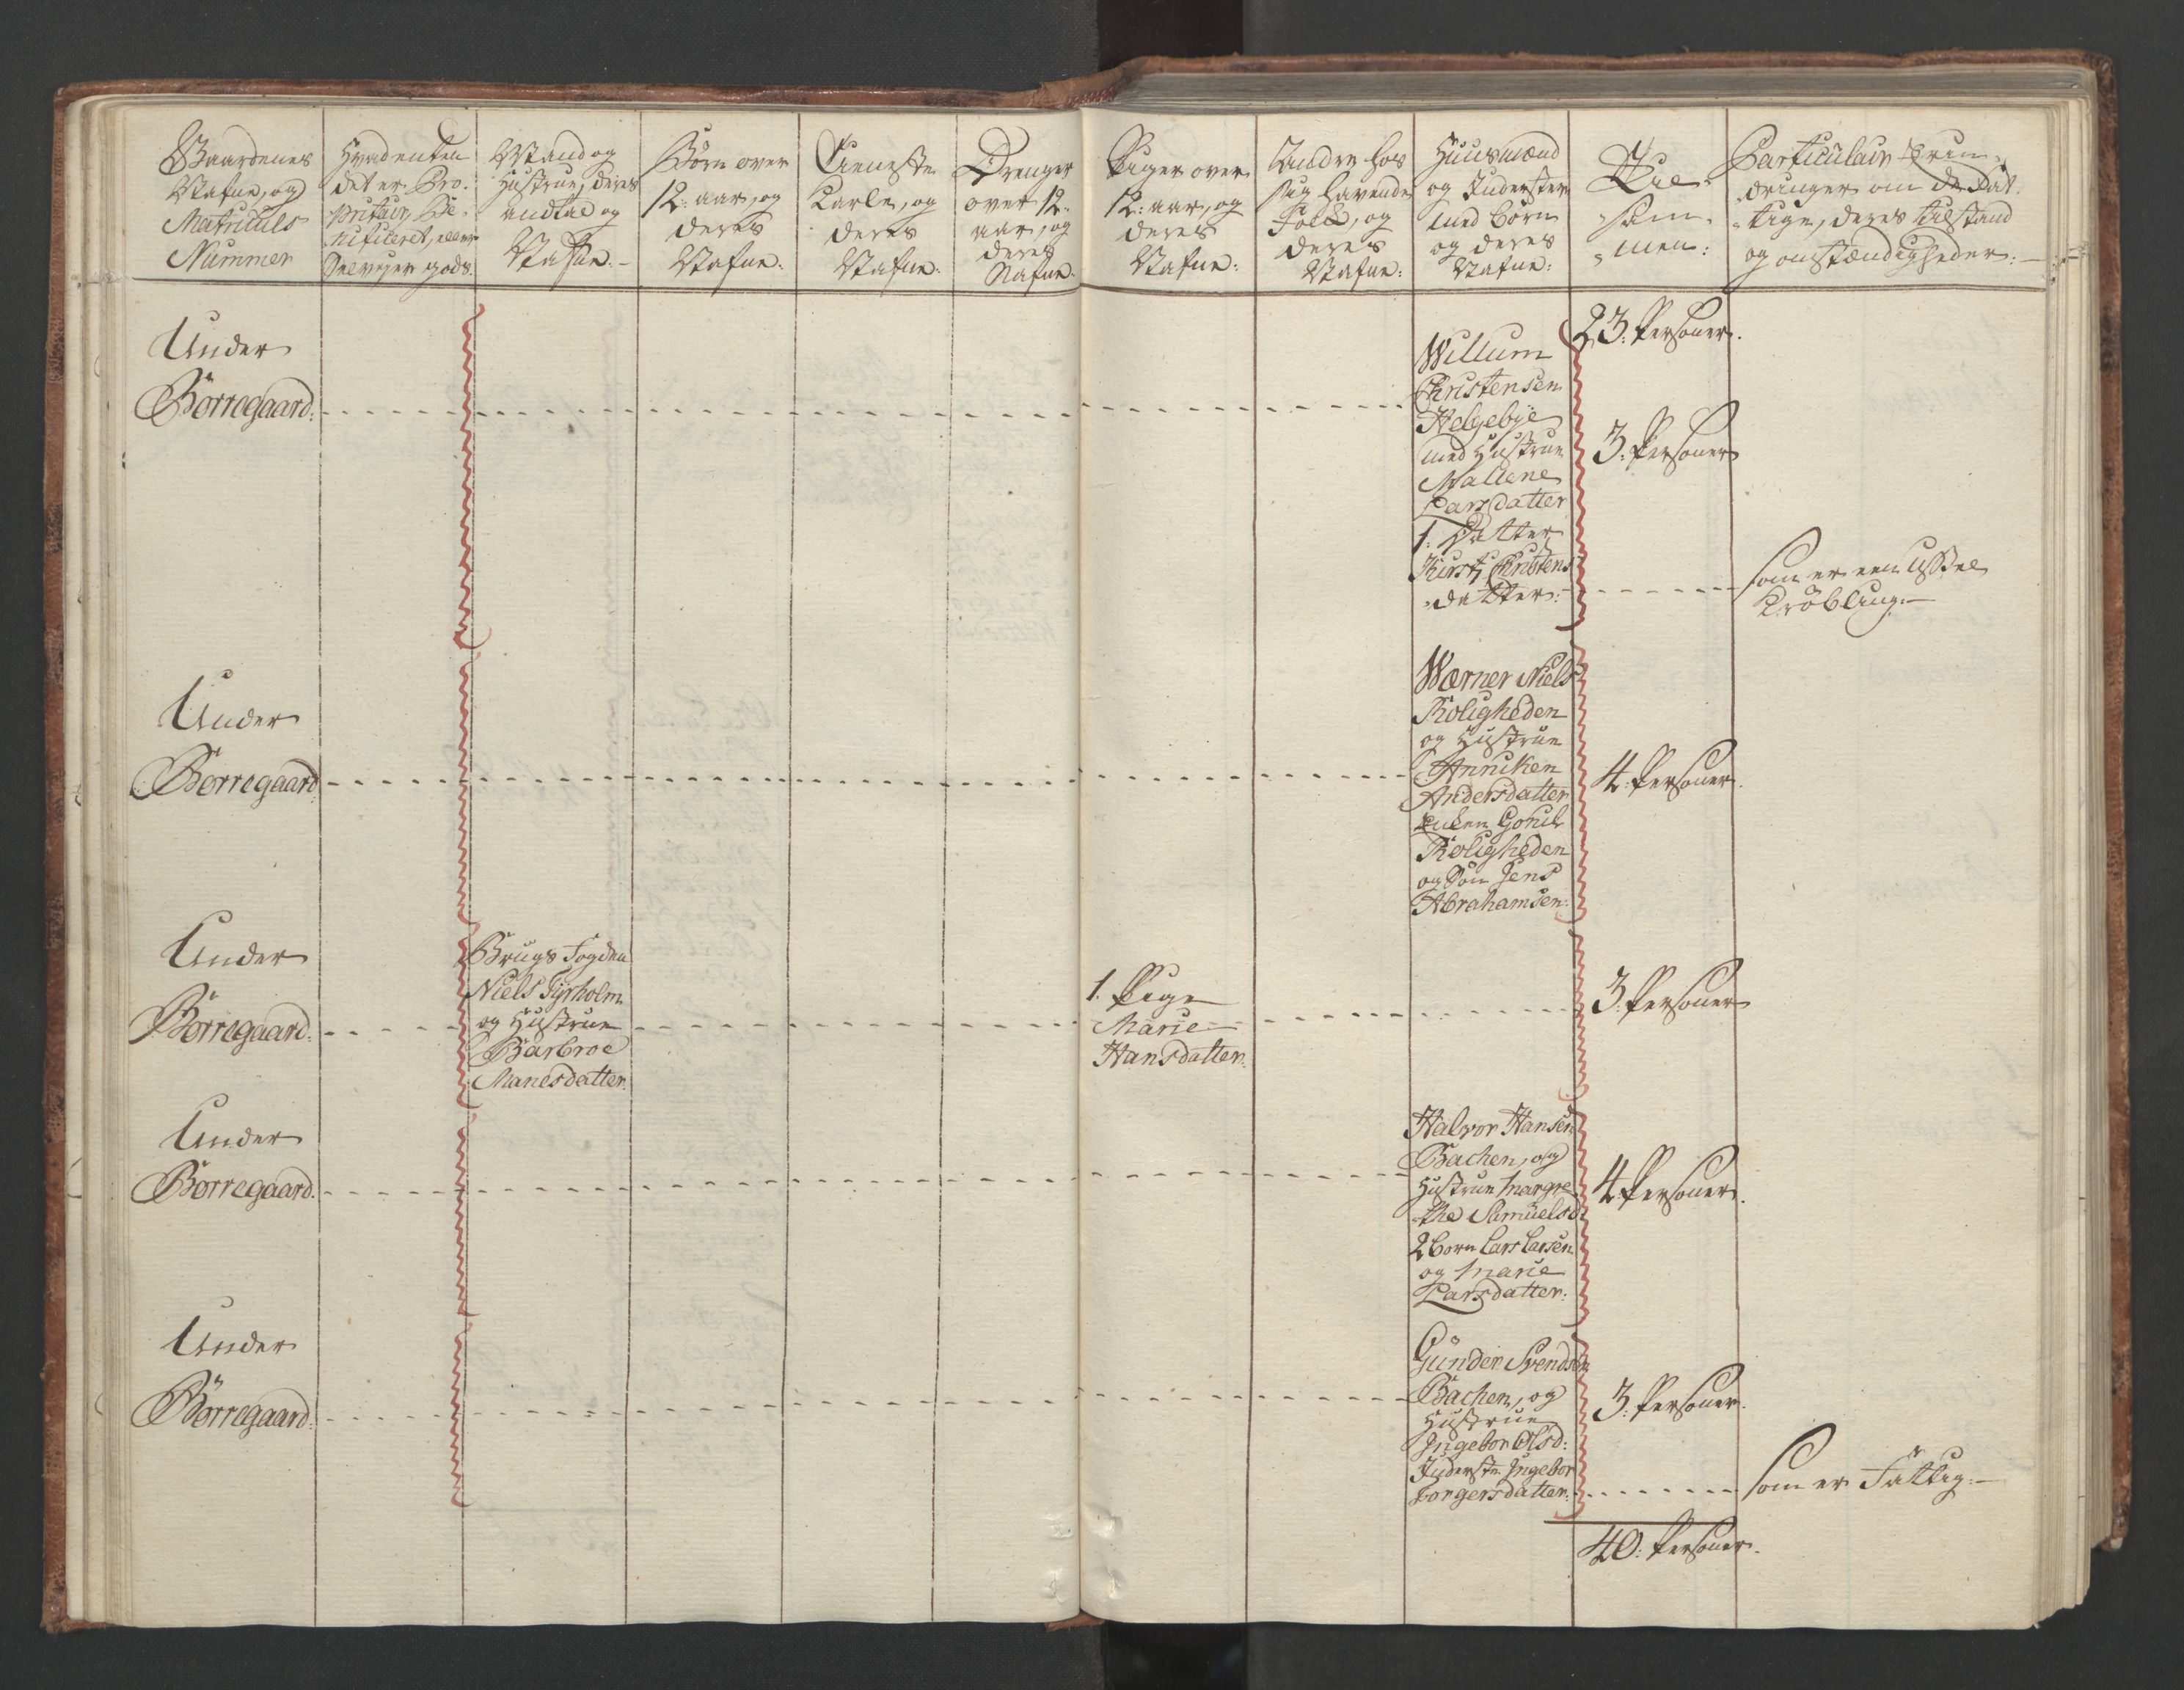 Gaardenes
Nafne, og
Matriculs
Nummer
Hvad enten
det er Pro-
pritair, Be-
nificeret, eller
Selveyer gods.
Mand og
Hustrue, deres
andtal og
Nafne.-
Børn over
12: aar, og
deres
Nafne:
Tieneste
Karle, og
deres
Nafne:
Drenger
over 12:
aar, og
deres
Nafne:
Piger over
12: aar, og
deres
Nafne:
Andre hos
sig havende
Folk, og
deres
Nafne:
Huusmænd
og Inderster
med børn
og deres
Nafne:
Til-
sam-
men:
Particulair Erin-
dringer om de Fat-
tige, deres tilstand
og omstændigheder:-
23: Personer.
Under
Børregaard:
Willum
Christensen
Helgebye
med Hustrue
Mallene
Larsdatter
1: Datter
Kirsti Christens
datter:
3: Personer
som er een ussel
Krøbling:-
Under
Børregaard
Wærner Niels
Roligheden
og Hustrue
Anniken
Andersdatter
Enken Gonil
Roligheden
og Søn Jens
Abrahamsen:
4: Personer.
Under
Børregaard:
Brugs Fogden
Niels Fyrholm
og Hustrue
Barbroe
Manesdatter.
1. Pige
Marie
Hansdatter.
3: Personer
Under
Børregaard.
Halvor Hansen
Bachen, og
Hustrue Margre
the Samuelsd:
2 børn Lars Larsen
og Marie
Larsdatter:
4 Personer.
Under
Børregaard:
Gunder Svendsen
Bachen, og
Hustrue
Ingebor Olsd:
Inderste Ingebor
Torgersdatter:
3: Personer.
som er Fattig:-
40: Personer.